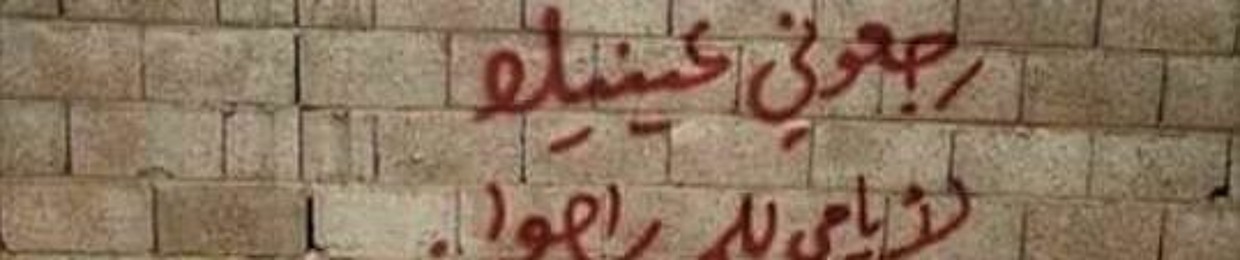 رجعوني عينيك
لأيامي للي راحوا.